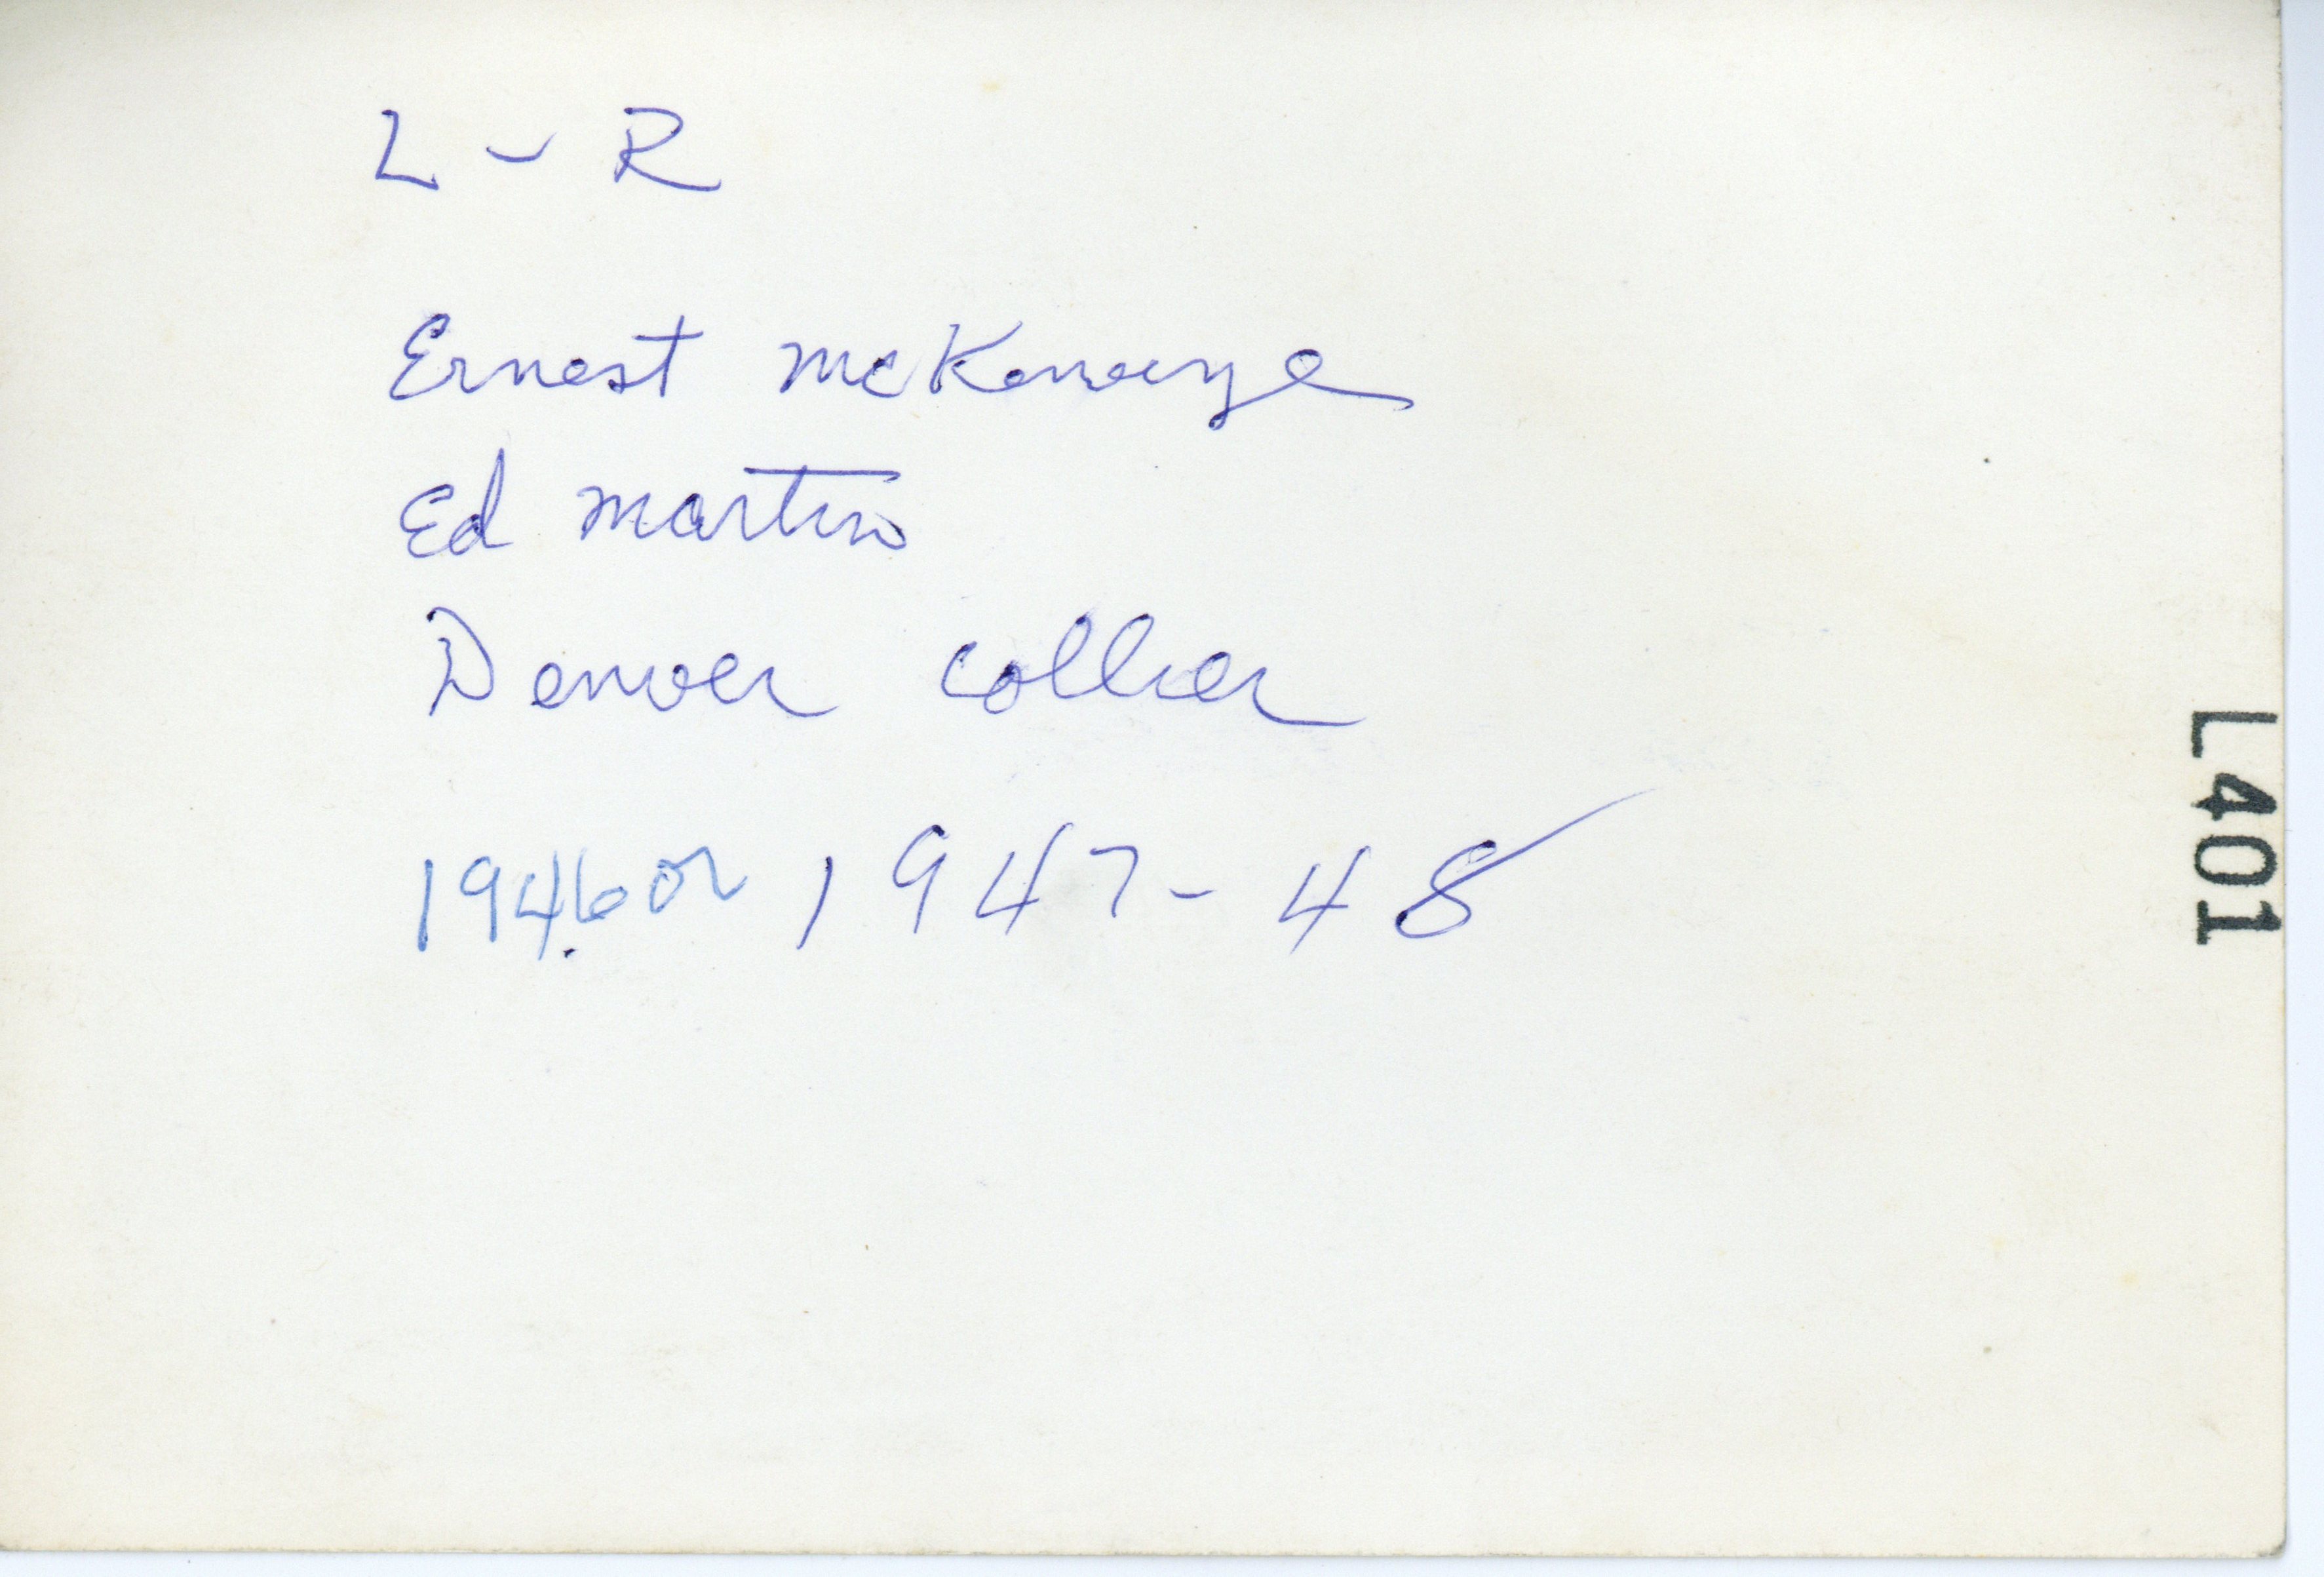 L - R
Ernest
Ed Martin
Denver Collier
1946 or 1947-48
L401